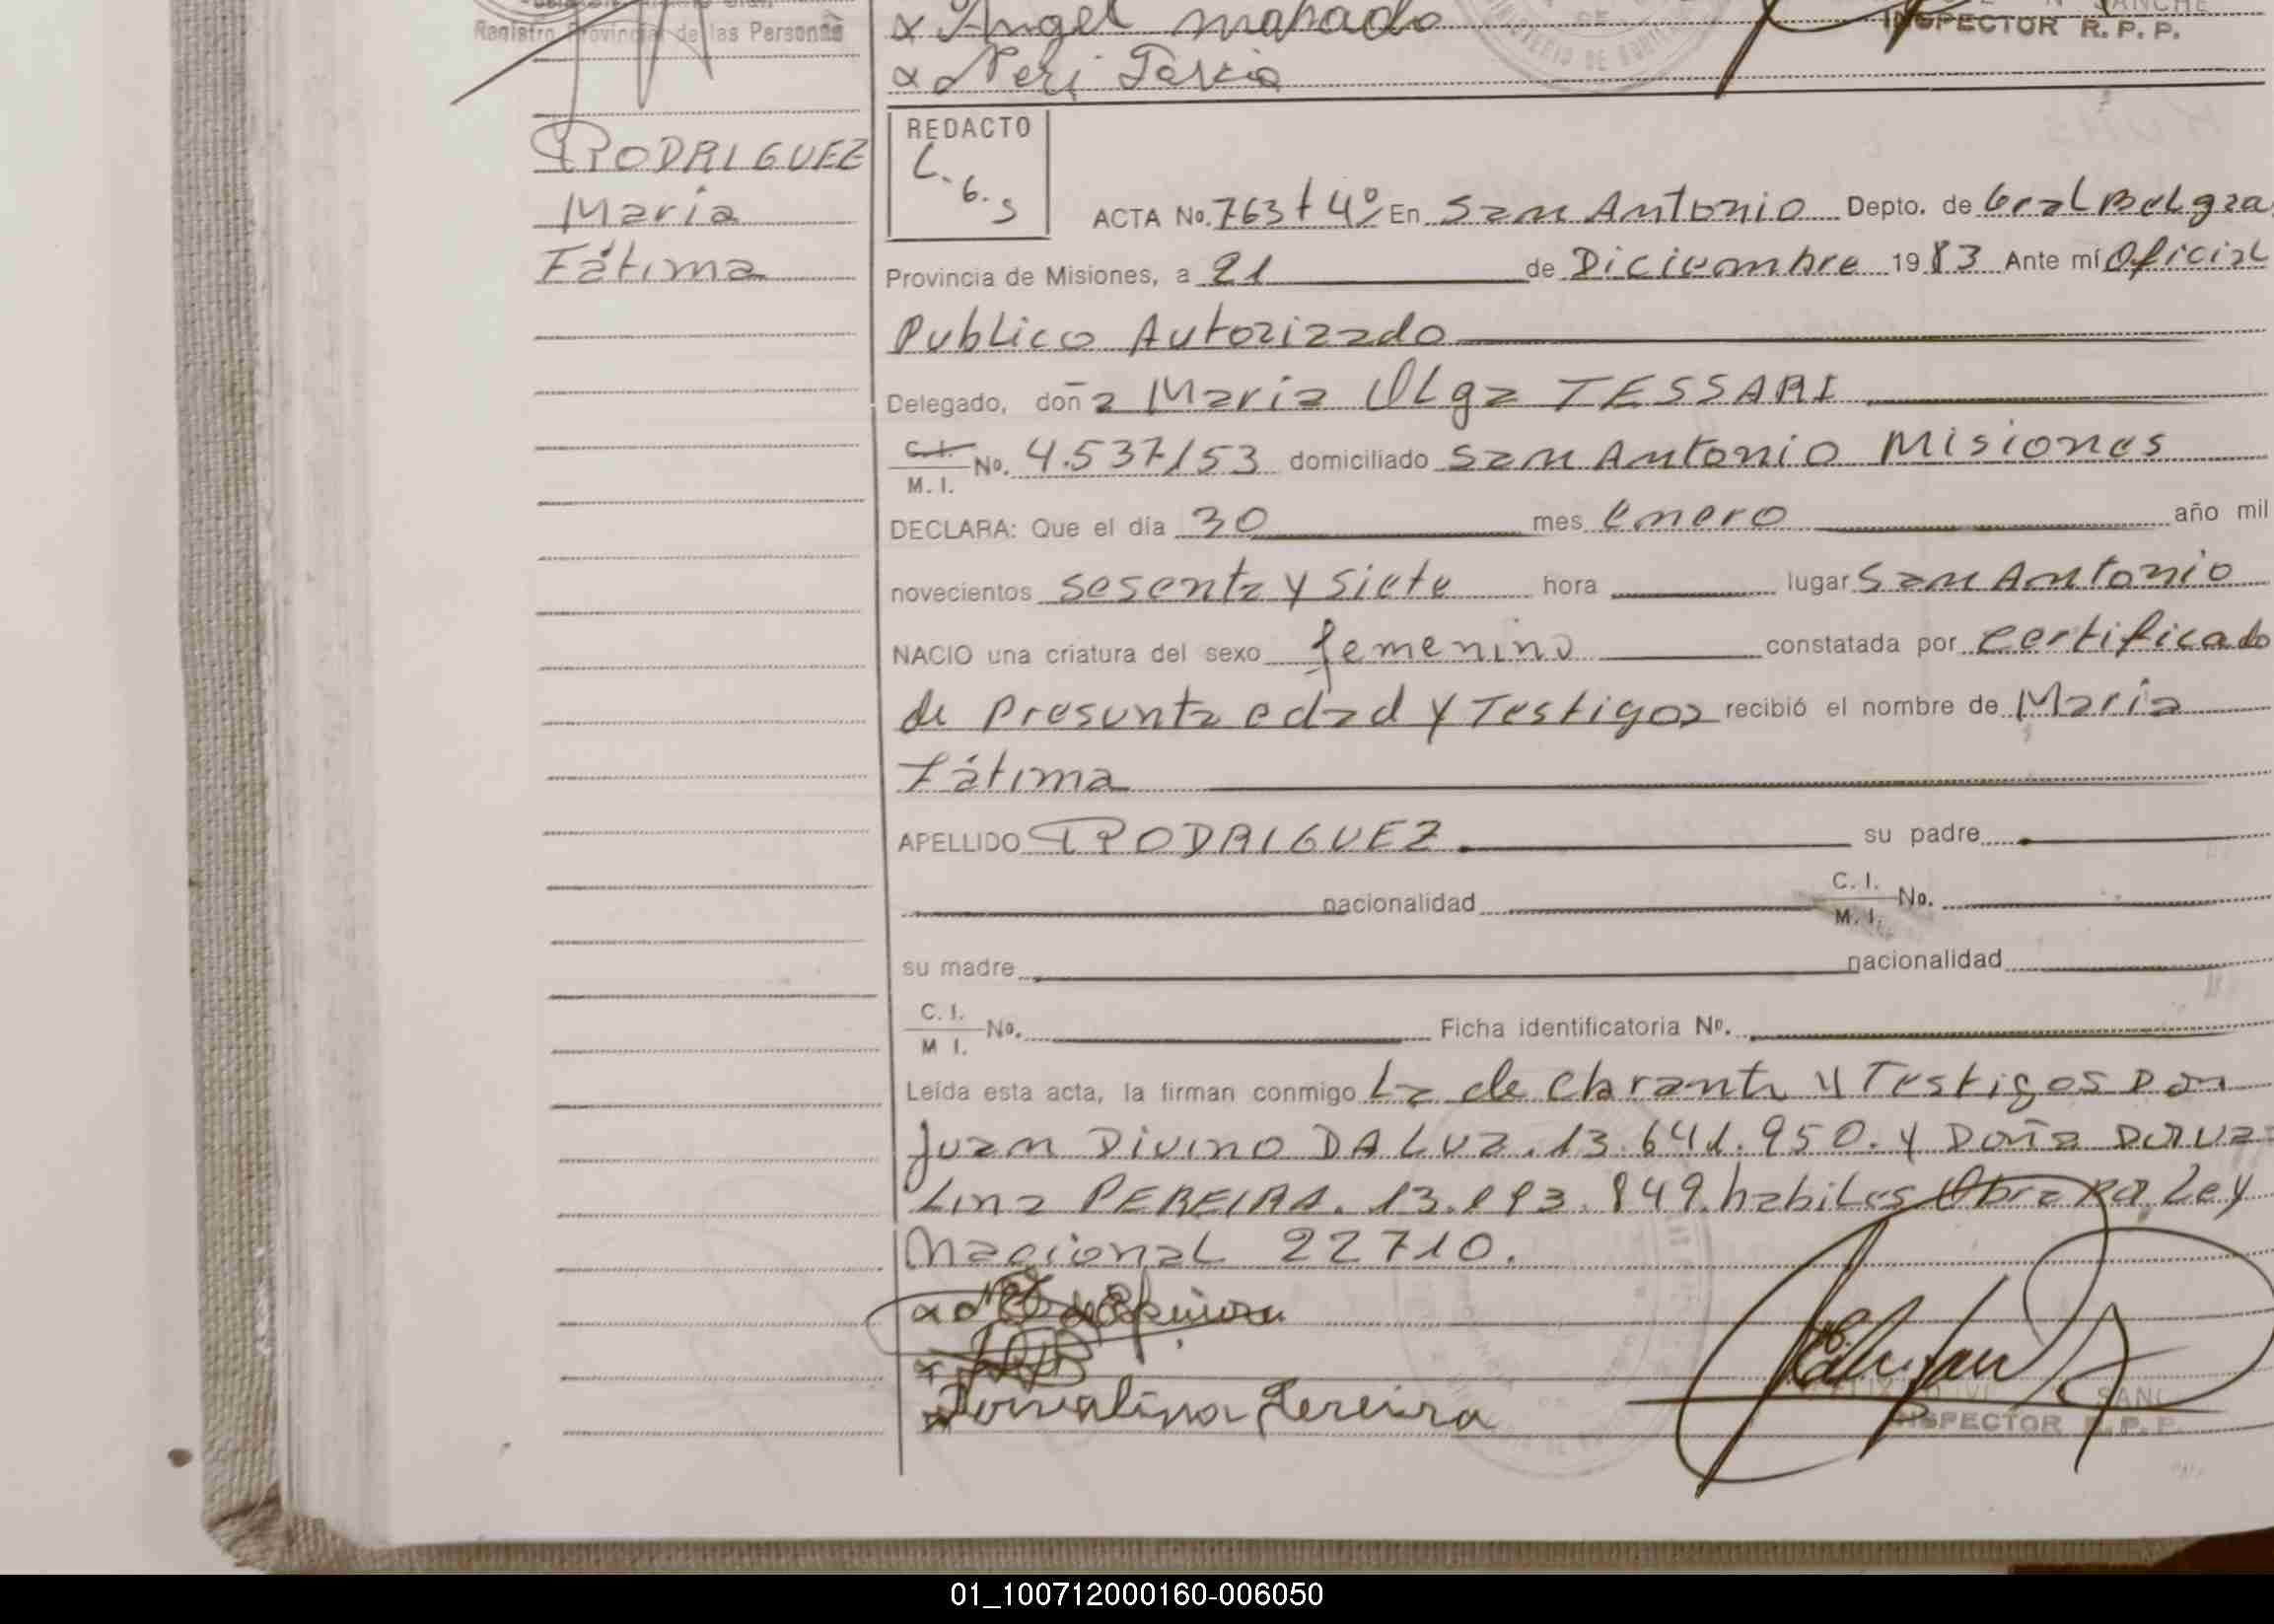 Registro Provincial de las Personas
x Angel machado
INSPECTOR R. P. P.
x Neri
RODRIGUEZ
Maria
Fátima
REDACTO
L. G. S
ACTA No. 763 t 4º En San Antonio Depto. de Gral Belgra
Provincia de Misiones, a 21 de Diciembre 1983 Ante mí Oficial
Publico Autorizado
Delegado, doña Maria Olga TESSARI
C. I. / M. I. No. 4.537153 domiciliado San Antonio Misiones
DECLARA: Que el día 30 mes Enero año mil
novecientos sesenta y siete hora lugar San Antonio
NACIO una criatura del sexo femenino constatada por certificado
de presunta edad y Testigos recibió el nombre de Maria
Fátima
APELLIDO RODRIGUEZ su padre
nacionalidad C. I. / M. I. No.
su madre nacionalidad
C. I. / M I. No. Ficha identificatoria No.
Leída esta acta, la firman conmigo La declarante y Testigos Don
Juan Divino DA LUZ. 13.641.950. y Doña Dorva
Lina PEREIRA. 13.893.849. habiles Obra Por Ley
Nacional 22710.
Dorvalina Pereira
INSPECTOR R. P. P.
01_100712000160-006050